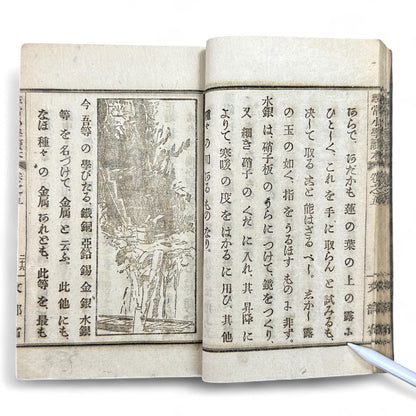 あらで、あたかも蓮の葉の上の露に
ひとしく、これを手に取らんと試みるも、
決して取ること能はざるべし。しかし露
の玉の如く、指をうるほすものに非ず。
水銀は、硝子板のうらにつけて、鏡をつくり、
又細き硝子のくだに入れ、其昇降に
よりて、寒暖の度をはかるに用ひ、其他
種々の用あるものなり。
今吾等の學びたる、鐵銅亞鉛錫金銀水銀
等を名づけて、金属と云ふ。此他にも、
なほ種々の金属あれども、此等を最も